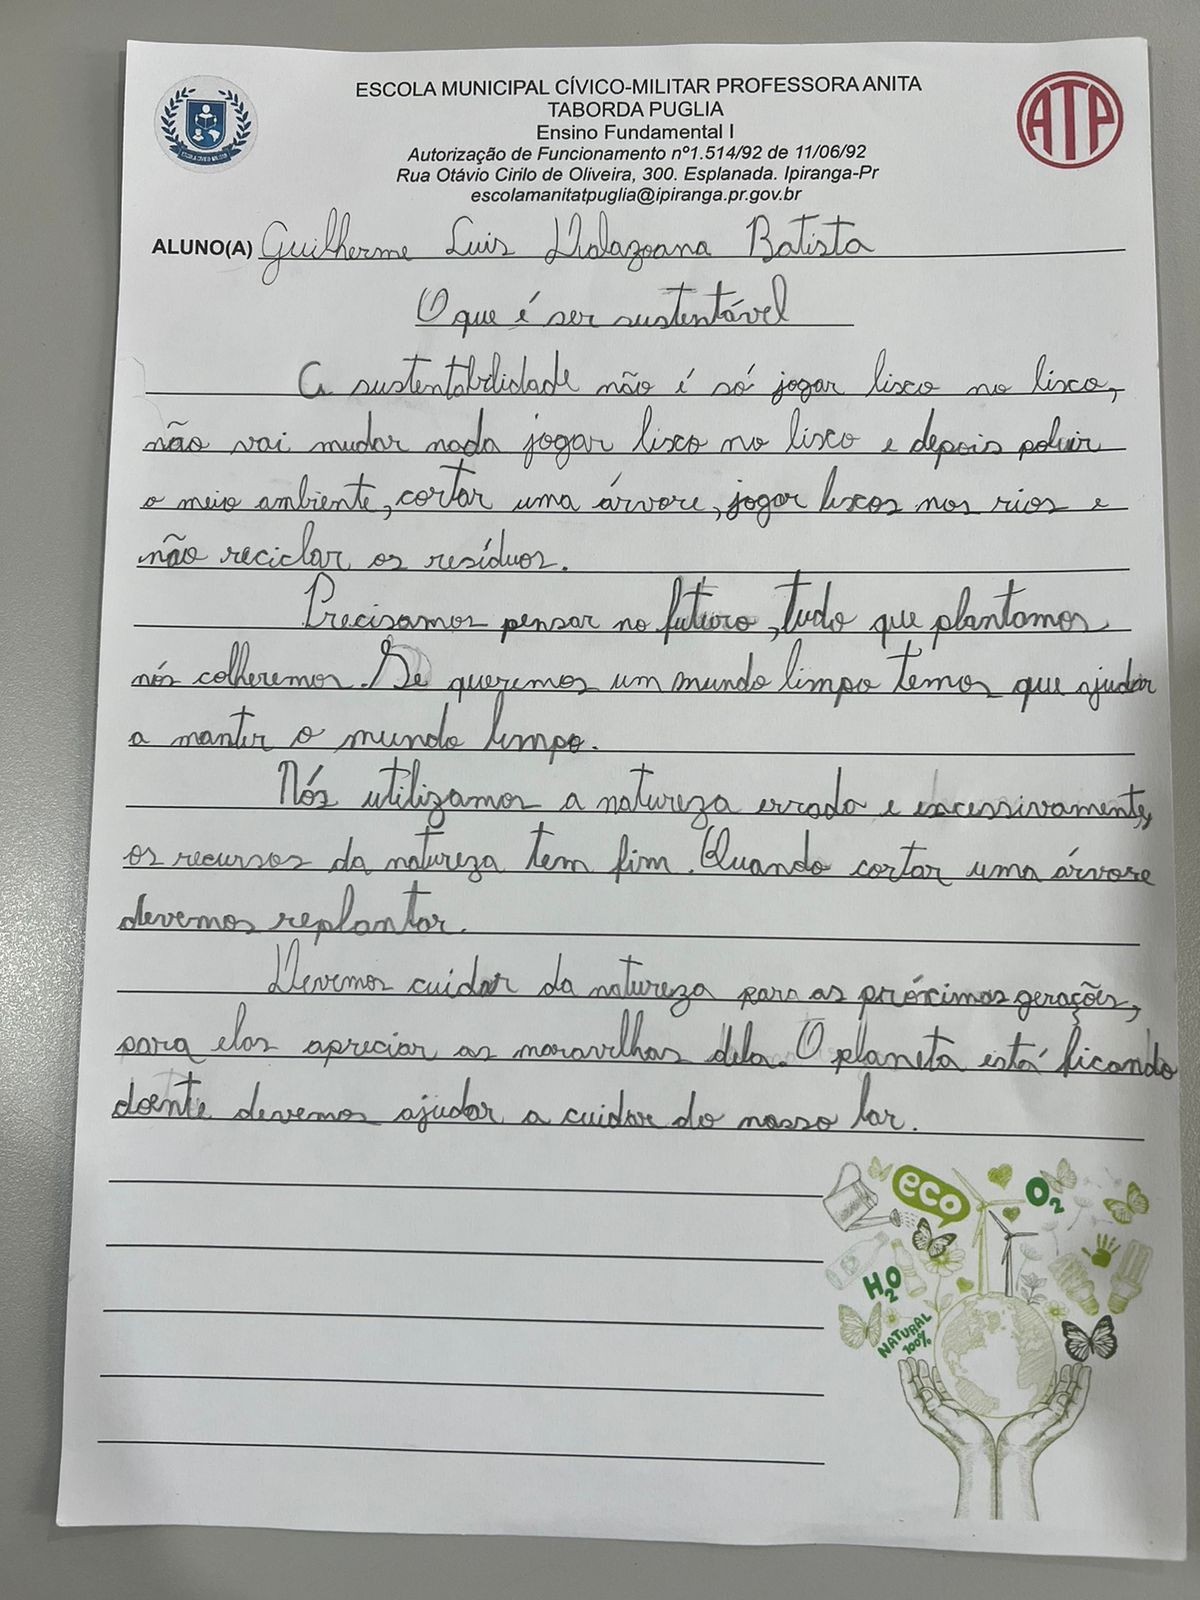 ESCOLA MUNICIPAL CÍVICO-MILITAR PROFESSORA ANITA
TABORDA PUGLIA
Ensino Fundamental I
Autorização de Funcionamento nº1.514/92 de 11/06/92
Rua Otávio Cirilo de Oliveira, 300. Esplanada. Ipiranga-Pr
escolamanitatpuglia@ipiranga.pr.gov.br
ATP
ALUNO(A) Guilherme Luis Dalazoana Batista
O que é ser sustentável
A sustentabilidade não é só jogar lixo no lixo,
não vai mudar nada jogar lixo no lixo e depois poluir
o meio ambiente, cortar uma árvore, jogar lixos nos rios e
não reciclar os resíduos.
Precisamos pensar no futuro, tudo que plantamos
nós colheremos. Se queremos um mundo limpo temos que ajudar
a manter o mundo limpo.
Nós utilizamos a natureza errada e excessivamente,
os recursos da natureza tem fim. Quando cortar uma árvore
devemos replantar.
Devemos cuidar da natureza para as próximas gerações,
para elas apreciar as maravilhas dela. O planeta está ficando
doente devemos ajudar a cuidar do nosso lar.
eco
O2
H2O
NATURAL
100%